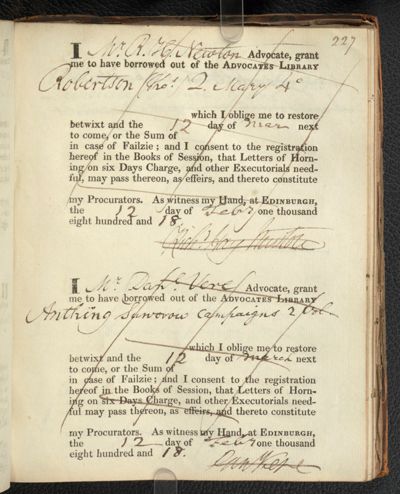 227
I Mr. R. H. Newton Advocate, grant
me to have borrowed out of the ADVOCATES LIBRARY
Robertson (Tho:) Q. Mary 4o
which I oblige me to restore
betwixt and the 12 day of Mar next
to come, or the Sum of
in case of Failzie; and I consent to the registration
hereof in the Books of Session, that Letters of Horn-
ing on six Days Charge, and other Executorials need-
ful, may pass thereon, as effeirs, and thereto constitute
my Procurators. As witness my Hand, at EDINBURGH,
the 12 day of Feby one thousand
eight hundred and 18.
I Mr. Dan. Vere Advocate, grant
me to have borrowed out of the ADVOCATES LIBRARY
Anthing Suworow Campaigns 2 Vol.
which I oblige me to restore
betwixt and the 12 day of March next
to come, or the Sum of
in case of Failzie; and I consent to the registration
hereof in the Books of Session, that Letters of Horn-
ing on six Days Charge, and other Executorials need-
ful may pass thereon, as effeirs, and thereto constitute
my Procurators. As witness my Hand, at EDINBURGH,
the 12 day of Feby one thousand
eight hundred and 18.
Dan Vere